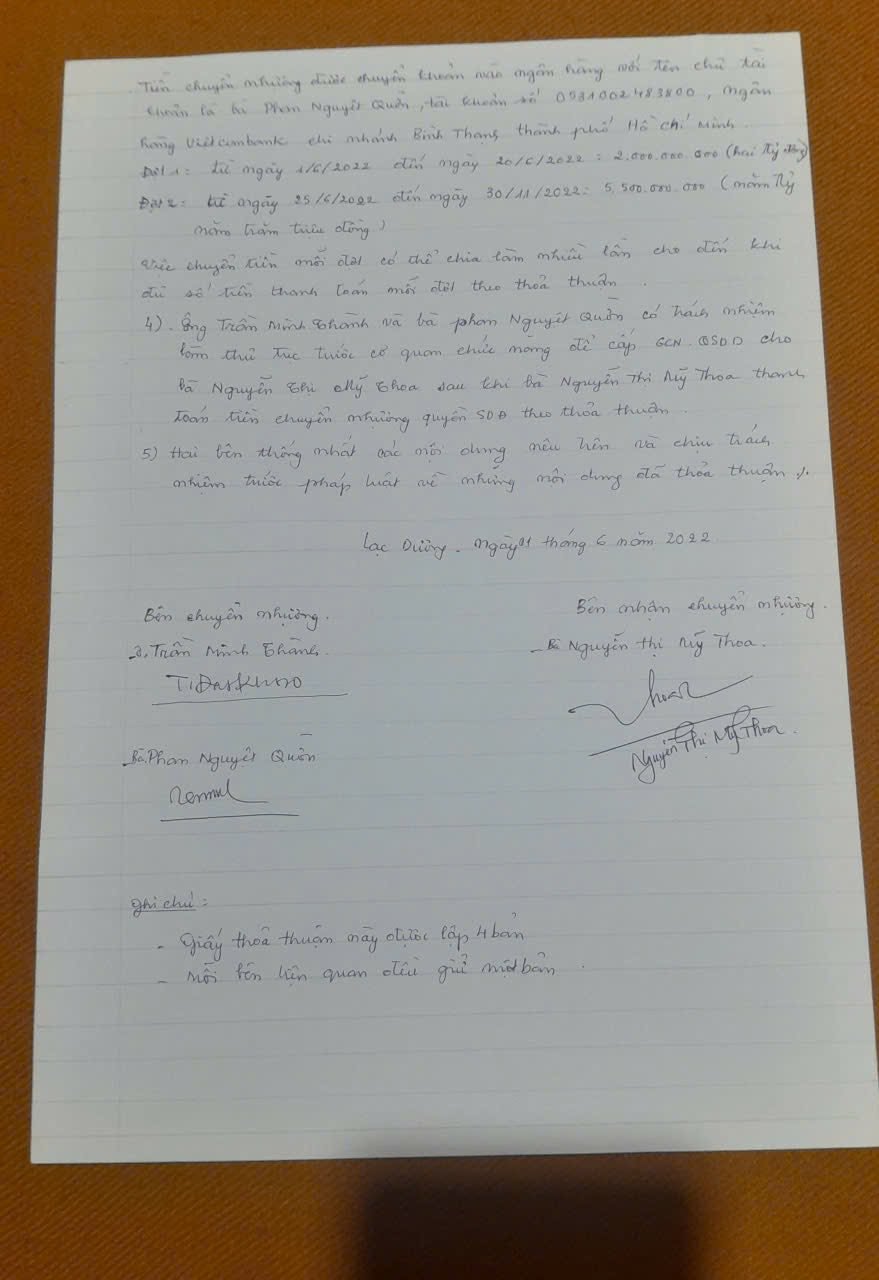 Tiền chuyển nhượng được chuyển khoản vào ngân hàng với tên chủ tài
khoản là bà Phan Nguyệt Quờn, tài khoản số 0531002483800, ngân
hàng Vietcombank chi nhánh Bình Thạnh thành phố Hồ Chí Minh.
Đợt 1: từ ngày 1/6/2022 đến ngày 20/6/2022: 2.000.000.000 (hai tỷ đồng)
Đợt 2: từ ngày 25/6/2022 đến ngày 30/11/2022: 5.500.000.000 (năm tỷ
năm trăm triệu đồng)
Việc chuyển tiền mỗi đợt có thể chia làm nhiều lần cho đến khi
đủ số tiền thanh toán mỗi đợt theo thoả thuận.
4). Ông Trần Minh Thành và bà Phan Nguyệt Quờn có trách nhiệm
làm thủ tục trước cơ quan chức năng để cấp GCN.QSDD cho
bà Nguyễn Thị Mỹ Thoa sau khi bà Nguyễn Thị Mỹ Thoa thanh
toán tiền chuyển nhượng quyền SDĐ theo thỏa thuận.
5) Hai bên thống nhất các nội dung nêu trên và chịu trách
nhiệm trước pháp luật về những nội dung đã thỏa thuận ./.
Lạc Dương. Ngày 01 tháng 6 năm 2022
Bên chuyển nhượng.
Bên nhận chuyển nhượng.
Trần Minh Thành.
Bà Nguyễn Thị Mỹ Thoa.
Thoa
Nguyễn Thị Mỹ Thoa.
Bà. Phan Nguyệt Quờn
Ghi chú:
- Giấy thoả thuận này được lập 4 bản
- Mỗi bên liên quan đều giữ một bản.